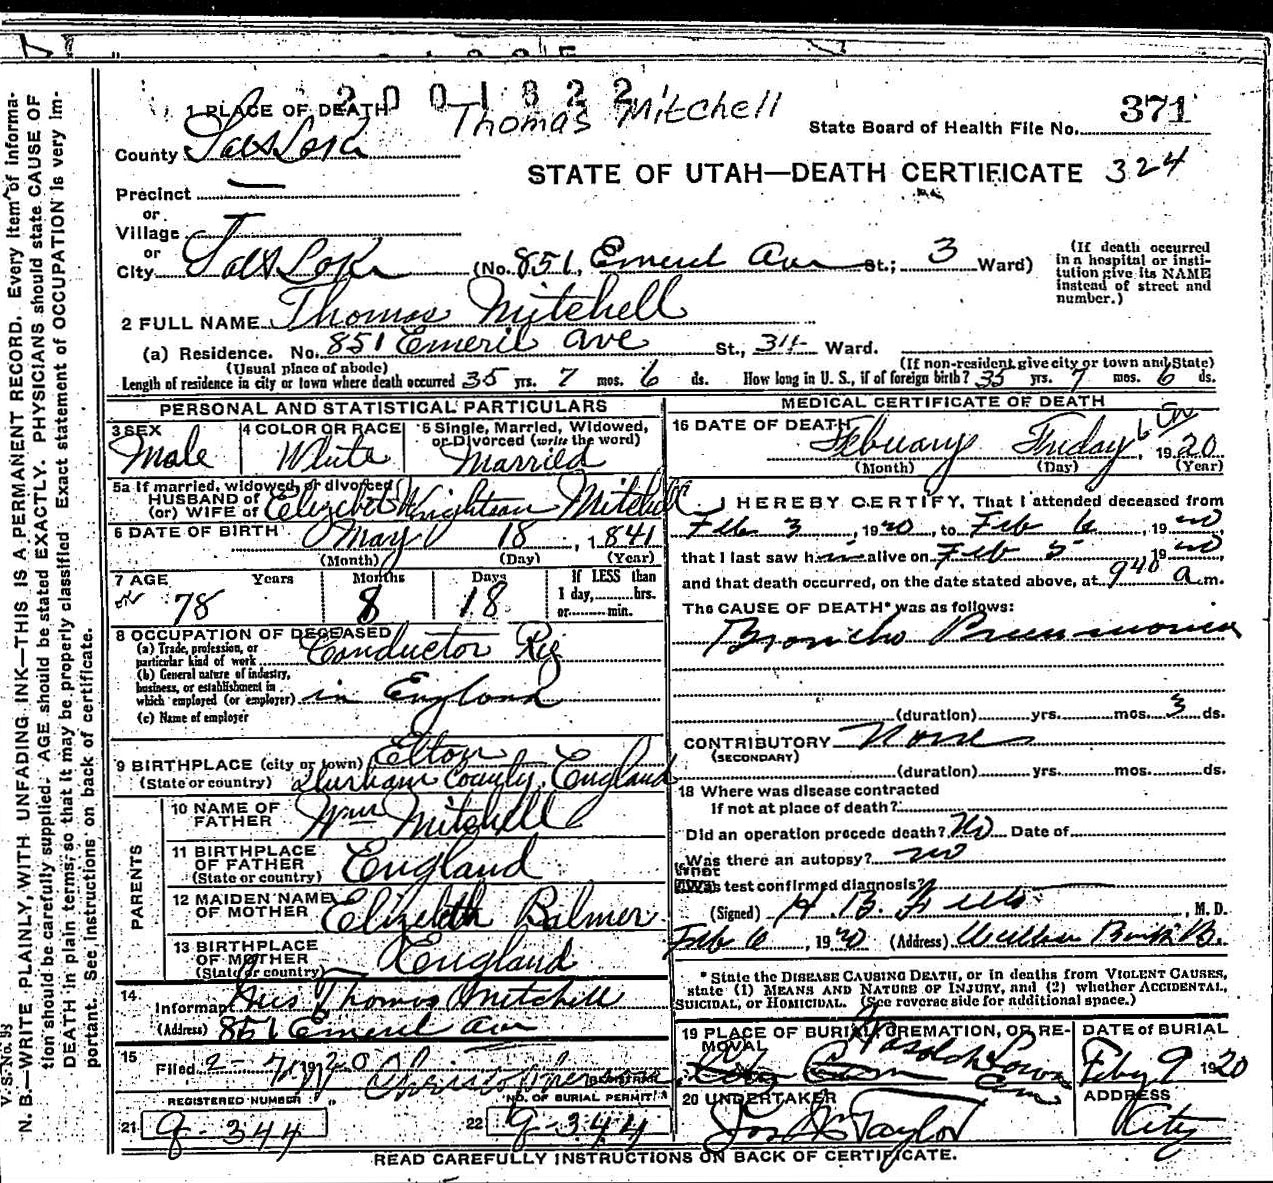 2001822
Thomas Mitchell
1 PLACE OF DEATH
State Board of Health File No. 371
County Salt Lake
STATE OF UTAH—DEATH CERTIFICATE 324
Precinct —
or
Village
or
City Salt Lake (No. 851, Emeril Ave St.; 3 Ward)
(If death occurred in a hospital or institution give its NAME instead of street and number.)
2 FULL NAME Thomas Mitchell
(a) Residence. No. 851 Emeril Ave St., 3 Ward.
(Usual place of abode) (If non-resident give city or town and State)
Length of residence in city or town where death occurred 35 yrs. 7 mos. 6 ds. How long in U. S., if of foreign birth? 35 yrs. 7 mos. 6 ds.
PERSONAL AND STATISTICAL PARTICULARS
3 SEX Male
4 COLOR OR RACE White
5 Single, Married, Widowed, or Divorced (write the word) Married
5a If married, widowed, or divorced
HUSBAND of
(or) WIFE of Mitchell
6 DATE OF BIRTH May 18, 1841
(Month) (Day) (Year)
7 AGE Years Months Days If LESS than 1 day, hrs. or min.
78 8 18
8 OCCUPATION OF DECEASED
(a) Trade, profession, or particular kind of work Conductor
(b) General nature of industry, business, or establishment in which employed (or employer) in England
(c) Name of employer
9 BIRTHPLACE (city or town) Elton
(State or country) Durham County, England
PARENTS
10 NAME OF FATHER Wm Mitchell
11 BIRTHPLACE OF FATHER (State or country) England
12 MAIDEN NAME OF MOTHER Elizabeth Balmer
13 BIRTHPLACE OF MOTHER (State or country) England
14 Informant Mrs Thomas Mitchell
(Address) 851 Emeril Ave
15 Filed 2-7, 1920
REGISTRAR
REGISTERED NUMBER NO. OF BURIAL PERMIT
21 9-344 22 9-344
MEDICAL CERTIFICATE OF DEATH
16 DATE OF DEATH Febuary Friday 6, 1920
(Month) (Day) (Year)
I HEREBY CERTIFY, That I attended deceased from
Feb 3, 1920, to Feb 6, 1920
that I last saw him alive on Feb 5, 1920
and that death occurred, on the date stated above, at 940 a m.
The CAUSE OF DEATH* was as follows:
Broncho Pneumonia
(duration) yrs. mos. 3 ds.
CONTRIBUTORY None
(SECONDARY)
(duration) yrs. mos. ds.
18 Where was disease contracted
If not at place of death?
Did an operation precede death? No Date of
Was there an autopsy? no
What test confirmed diagnosis?
(Signed) , M. D.
Feb 6, 1920 (Address)
* State the DISEASE CAUSING DEATH, or in deaths from VIOLENT CAUSES,
state (1) MEANS AND NATURE OF INJURY, and (2) whether ACCIDENTAL,
SUICIDAL, OR HOMICIDAL. (See reverse side for additional space.)
19 PLACE OF BURIAL, CREMATION, OR REMOVAL
DATE of BURIAL
Feby 9 1920
20 UNDERTAKER
Taylor
ADDRESS
City
READ CAREFULLY INSTRUCTIONS ON BACK OF CERTIFICATE.
V. S. No.
N. B.—WRITE PLAINLY, WITH UNFADING INK—THIS IS A PERMANENT RECORD. Every item of information should be carefully supplied. AGE should be stated EXACTLY. PHYSICIANS should state CAUSE OF DEATH in plain terms, so that it may be properly classified. Exact statement of OCCUPATION is very important. See instructions on back of certificate.